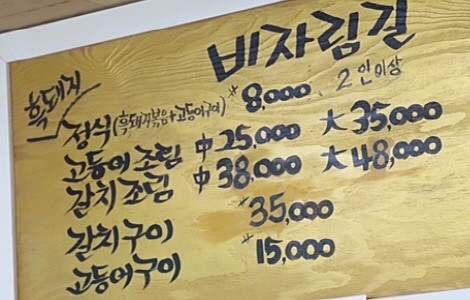 비자림길
흑돼지
정식(흑돼지볶음+고등어구이) #8,000 2인이상
고등어 조림 中25,000 大35,000
갈치조림 中38,000 大48,000
갈치구이 #35,000
고등어구이 #15,000